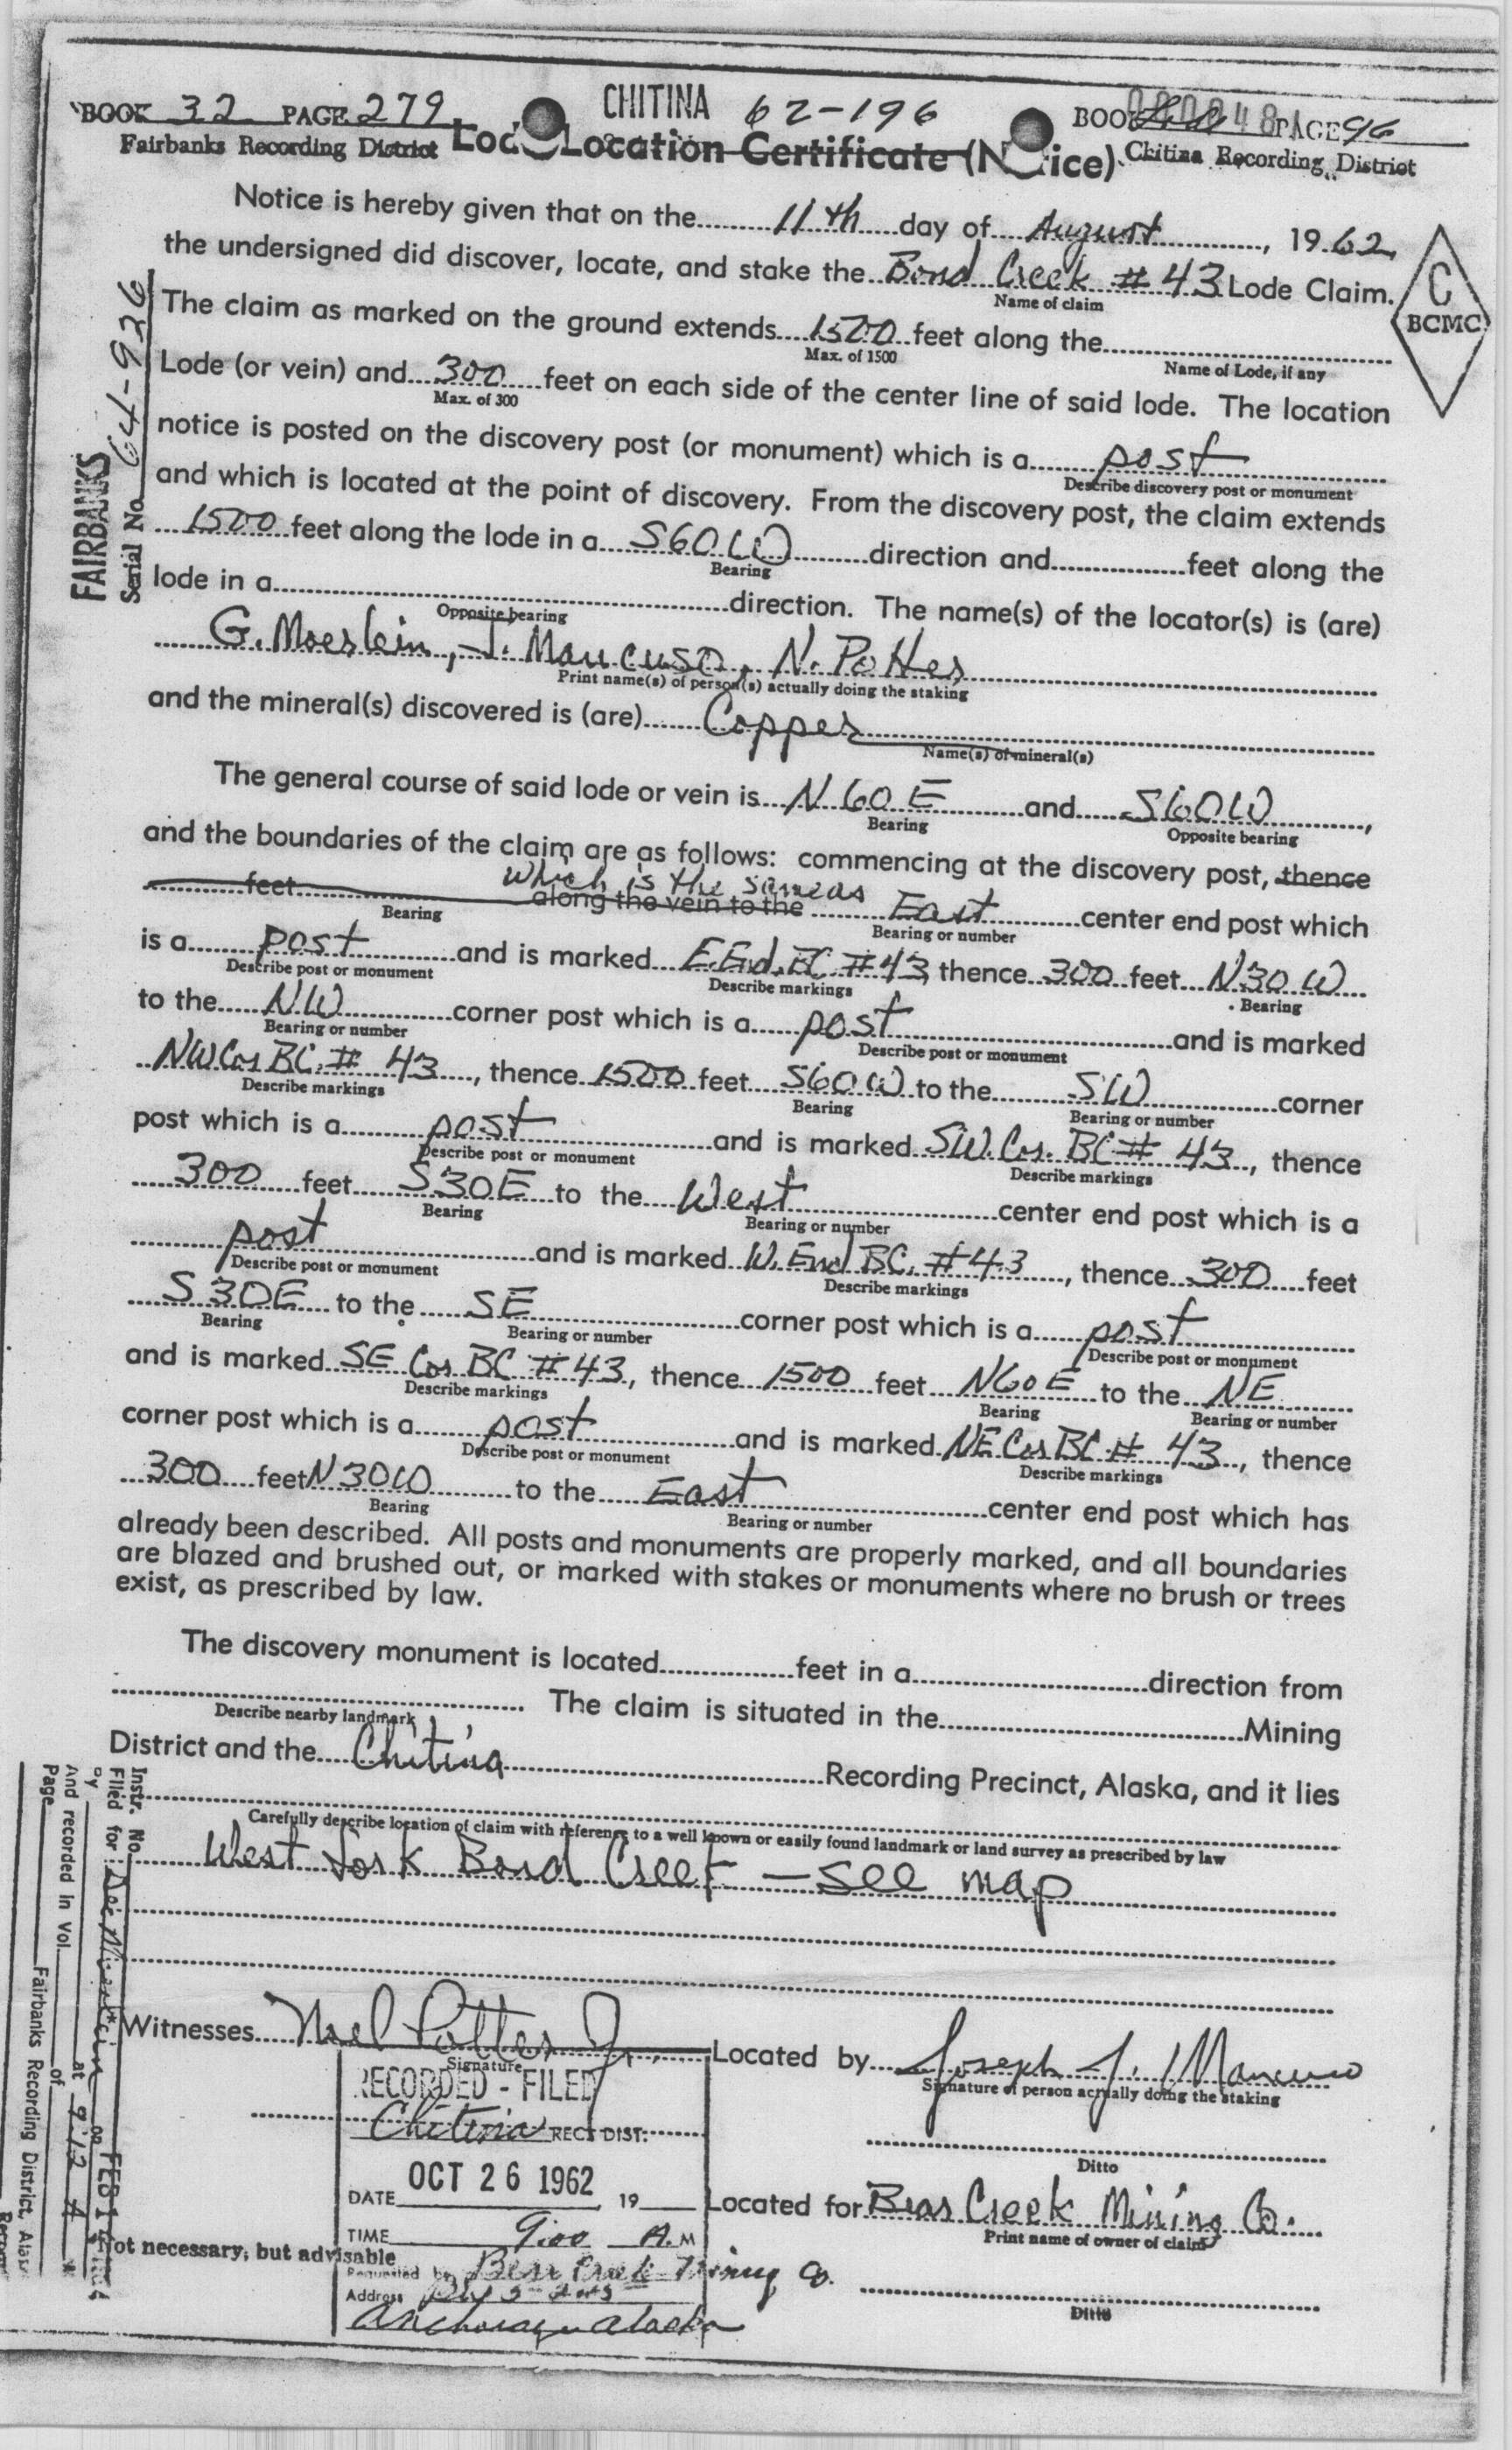 BOOK 32 PAGE 279
Fairbanks Recording District
CHITINA 62-196
BOOK PAGE 96
Chitina Recording District
Location Certificate (Notice)
Notice is hereby given that on the 11th day of August, 1962
the undersigned did discover, locate, and stake the Bond Creek # 43 Lode Claim.
Name of claim
C
BCMC
FAIRBANKS
Serial No. 64-926
The claim as marked on the ground extends 1500 feet along the
Max. of 1500 Name of Lode, if any
Lode (or vein) and 300 feet on each side of the center line of said lode. The location
Max. of 300
notice is posted on the discovery post (or monument) which is a post
Describe discovery post or monument
and which is located at the point of discovery. From the discovery post, the claim extends
1500 feet along the lode in a S60W direction and feet along the
Bearing
lode in a direction. The name(s) of the locator(s) is (are)
Opposite bearing
G. Moerlein, J. Mancuso, N. Potter
Print name(s) of person(s) actually doing the staking
and the mineral(s) discovered is (are) Copper
Name(s) of mineral(s)
The general course of said lode or vein is N60E and S60W,
Bearing Opposite bearing
and the boundaries of the claim are as follows: commencing at the discovery post, thence
which is the same as
feet along the vein to the East center end post which
Bearing Bearing or number
is a post and is marked E.End.BC #43, thence 300 feet N30W
Describe post or monument Describe markings Bearing
to the NW corner post which is a post and is marked
Bearing or number Describe post or monument
NW Cor BC. # 43, thence 1500 feet S60W to the SW corner
Describe markings Bearing Bearing or number
post which is a post and is marked SW. Cor. BC # 43, thence
Describe post or monument Describe markings
300 feet S30E to the West center end post which is a
Bearing Bearing or number
post and is marked W. End BC. #43, thence 300 feet
Describe post or monument Describe markings
S30E to the SE corner post which is a post
Bearing Bearing or number Describe post or monument
and is marked SE Cor BC #43, thence 1500 feet N60E to the NE
Describe markings Bearing Bearing or number
corner post which is a post and is marked NE Cor BC # 43, thence
Describe post or monument Describe markings
300 feet N30W to the East center end post which has
Bearing Bearing or number
already been described. All posts and monuments are properly marked, and all boundaries
are blazed and brushed out, or marked with stakes or monuments where no brush or trees
exist, as prescribed by law.
The discovery monument is located feet in a direction from
The claim is situated in the Mining
Describe nearby landmark
District and the Chitina Recording Precinct, Alaska, and it lies
Carefully describe location of claim with reference to a well known or easily found landmark or land survey as prescribed by law
West fork Bond Creek - see map
Instr. No.
Filed for
And recorded in Vol. of
Page Fairbanks Recording District
at 9:12 A
Witnesses Noel Potter Jr.
Signature
Located by Joseph J. Mancuso
Signature of person actually doing the staking
RECORDED - FILED
Chitina REC. DIST.
Ditto
DATE OCT 26 1962 19
Located for Bear Creek Mining Co.
Print name of owner of claim
TIME 9:00 A.M
Not necessary, but advisable
Requested by Bear Creek Mining Co.
Address
Anchorage Alaska
Ditto